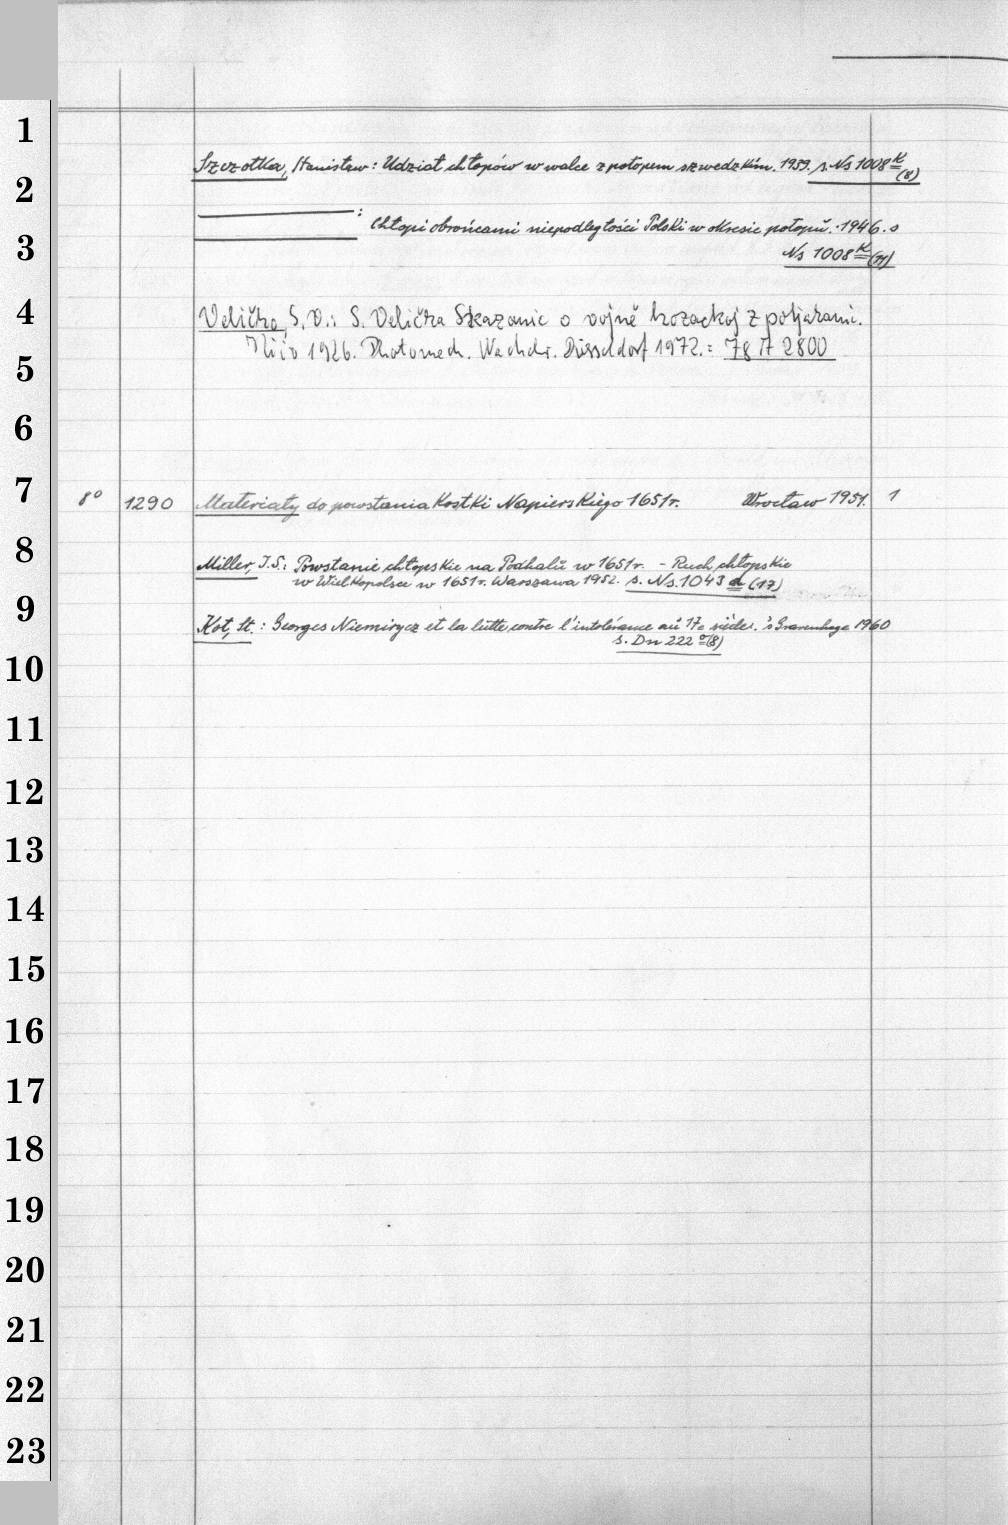 1
2
3
4
5
6
7
8
9
10
11
12
13
14
15
16
17
18
19
20
21
22
23
Szczotka, Stanisław: Udział chłopów w walce z potopem szwedzkim. 1939. s. Ns 1008 K (8)
: Chłopi obrońcami niepodległości Polski w okresie potopu. 1946. s
Ns 1008 K (11)
Velička, S. V.: S. Velička Skazanie o vojně kozackoj z poljakami.
Kiiv 1926. Photomech. Nachdr. Düsseldorf 1972.: 78 A 2800
8° 1290 Materiały do powstania Kostki Napierskiego 1651 r. Wrocław 1951. 1
Miller, I. S.: Powstanie chłopskie na Podhalu w 1651 r. - Ruch chłopskie
w Wielkopolsce w 1651 r. Warszawa 1952. s. Ns. 1043 d (17)
Kot, St.: Georges Niemirycz et la lutte contre l'intolérance au 17e siècle. 's Gravenhage 1960
s. Dn 222 (8)